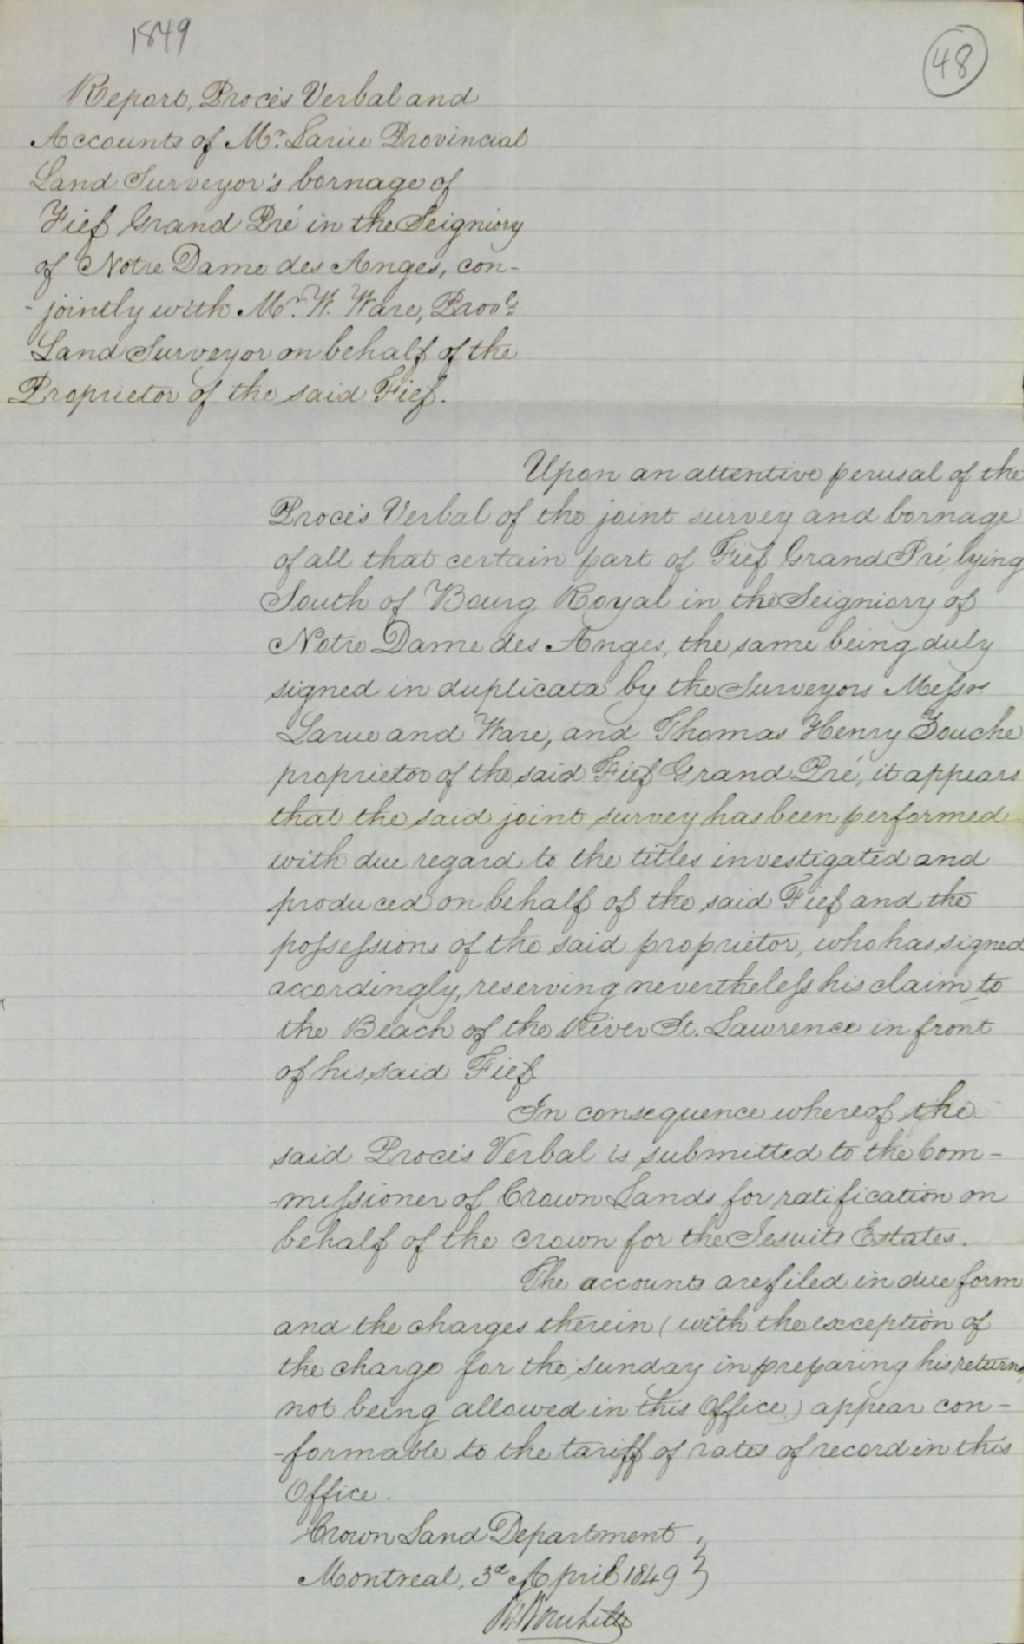 1849
48
Report, Procés Verbal and
Accounts of Mr. Larue Provincial
Land Surveyor's bornage of
Fief Grand Pré in the Seigniory
of Notre Dame des Anges, con-
-jointly with Mr. W. Ware, Provl.
Land Surveyor on behalf of the
Proprietor of the said Fief.
Upon an attentive perusal of the
Procés Verbal of the joint survey and bornage
of all that certain part of Fief Grand Pré, lying
South of Bourg Royal in the Seigniory of
Notre Dame des Anges, the same being duly
signed in duplicata by the Surveyors Messrs
Larue and Ware, and Thomas Henry Zouche
proprietor of the said Fief Grand Pré, it appears
that the said joint survey has been performed
with due regard to the titles investigated and
produced on behalf of the said Fief and the
possessions of the said proprietor, who has signed
accordingly, reserving nevertheless his claim to
the Beach of the River St. Lawrence in front
of his said Fief
In consequence whereof the
said Procés Verbal is submitted to the Com-
-missioner of Crown Lands for ratification on
behalf of the crown for the Jesuits Estates.
The accounts are filed in due form
and the charges therein (with the exception of
the charge for the sunday in preparing his returns,
not being allowed in this Office) appear con-
-formable to the tariff of rates of record in this
Office
Crown Land Department
Montreal, 3d April 1849